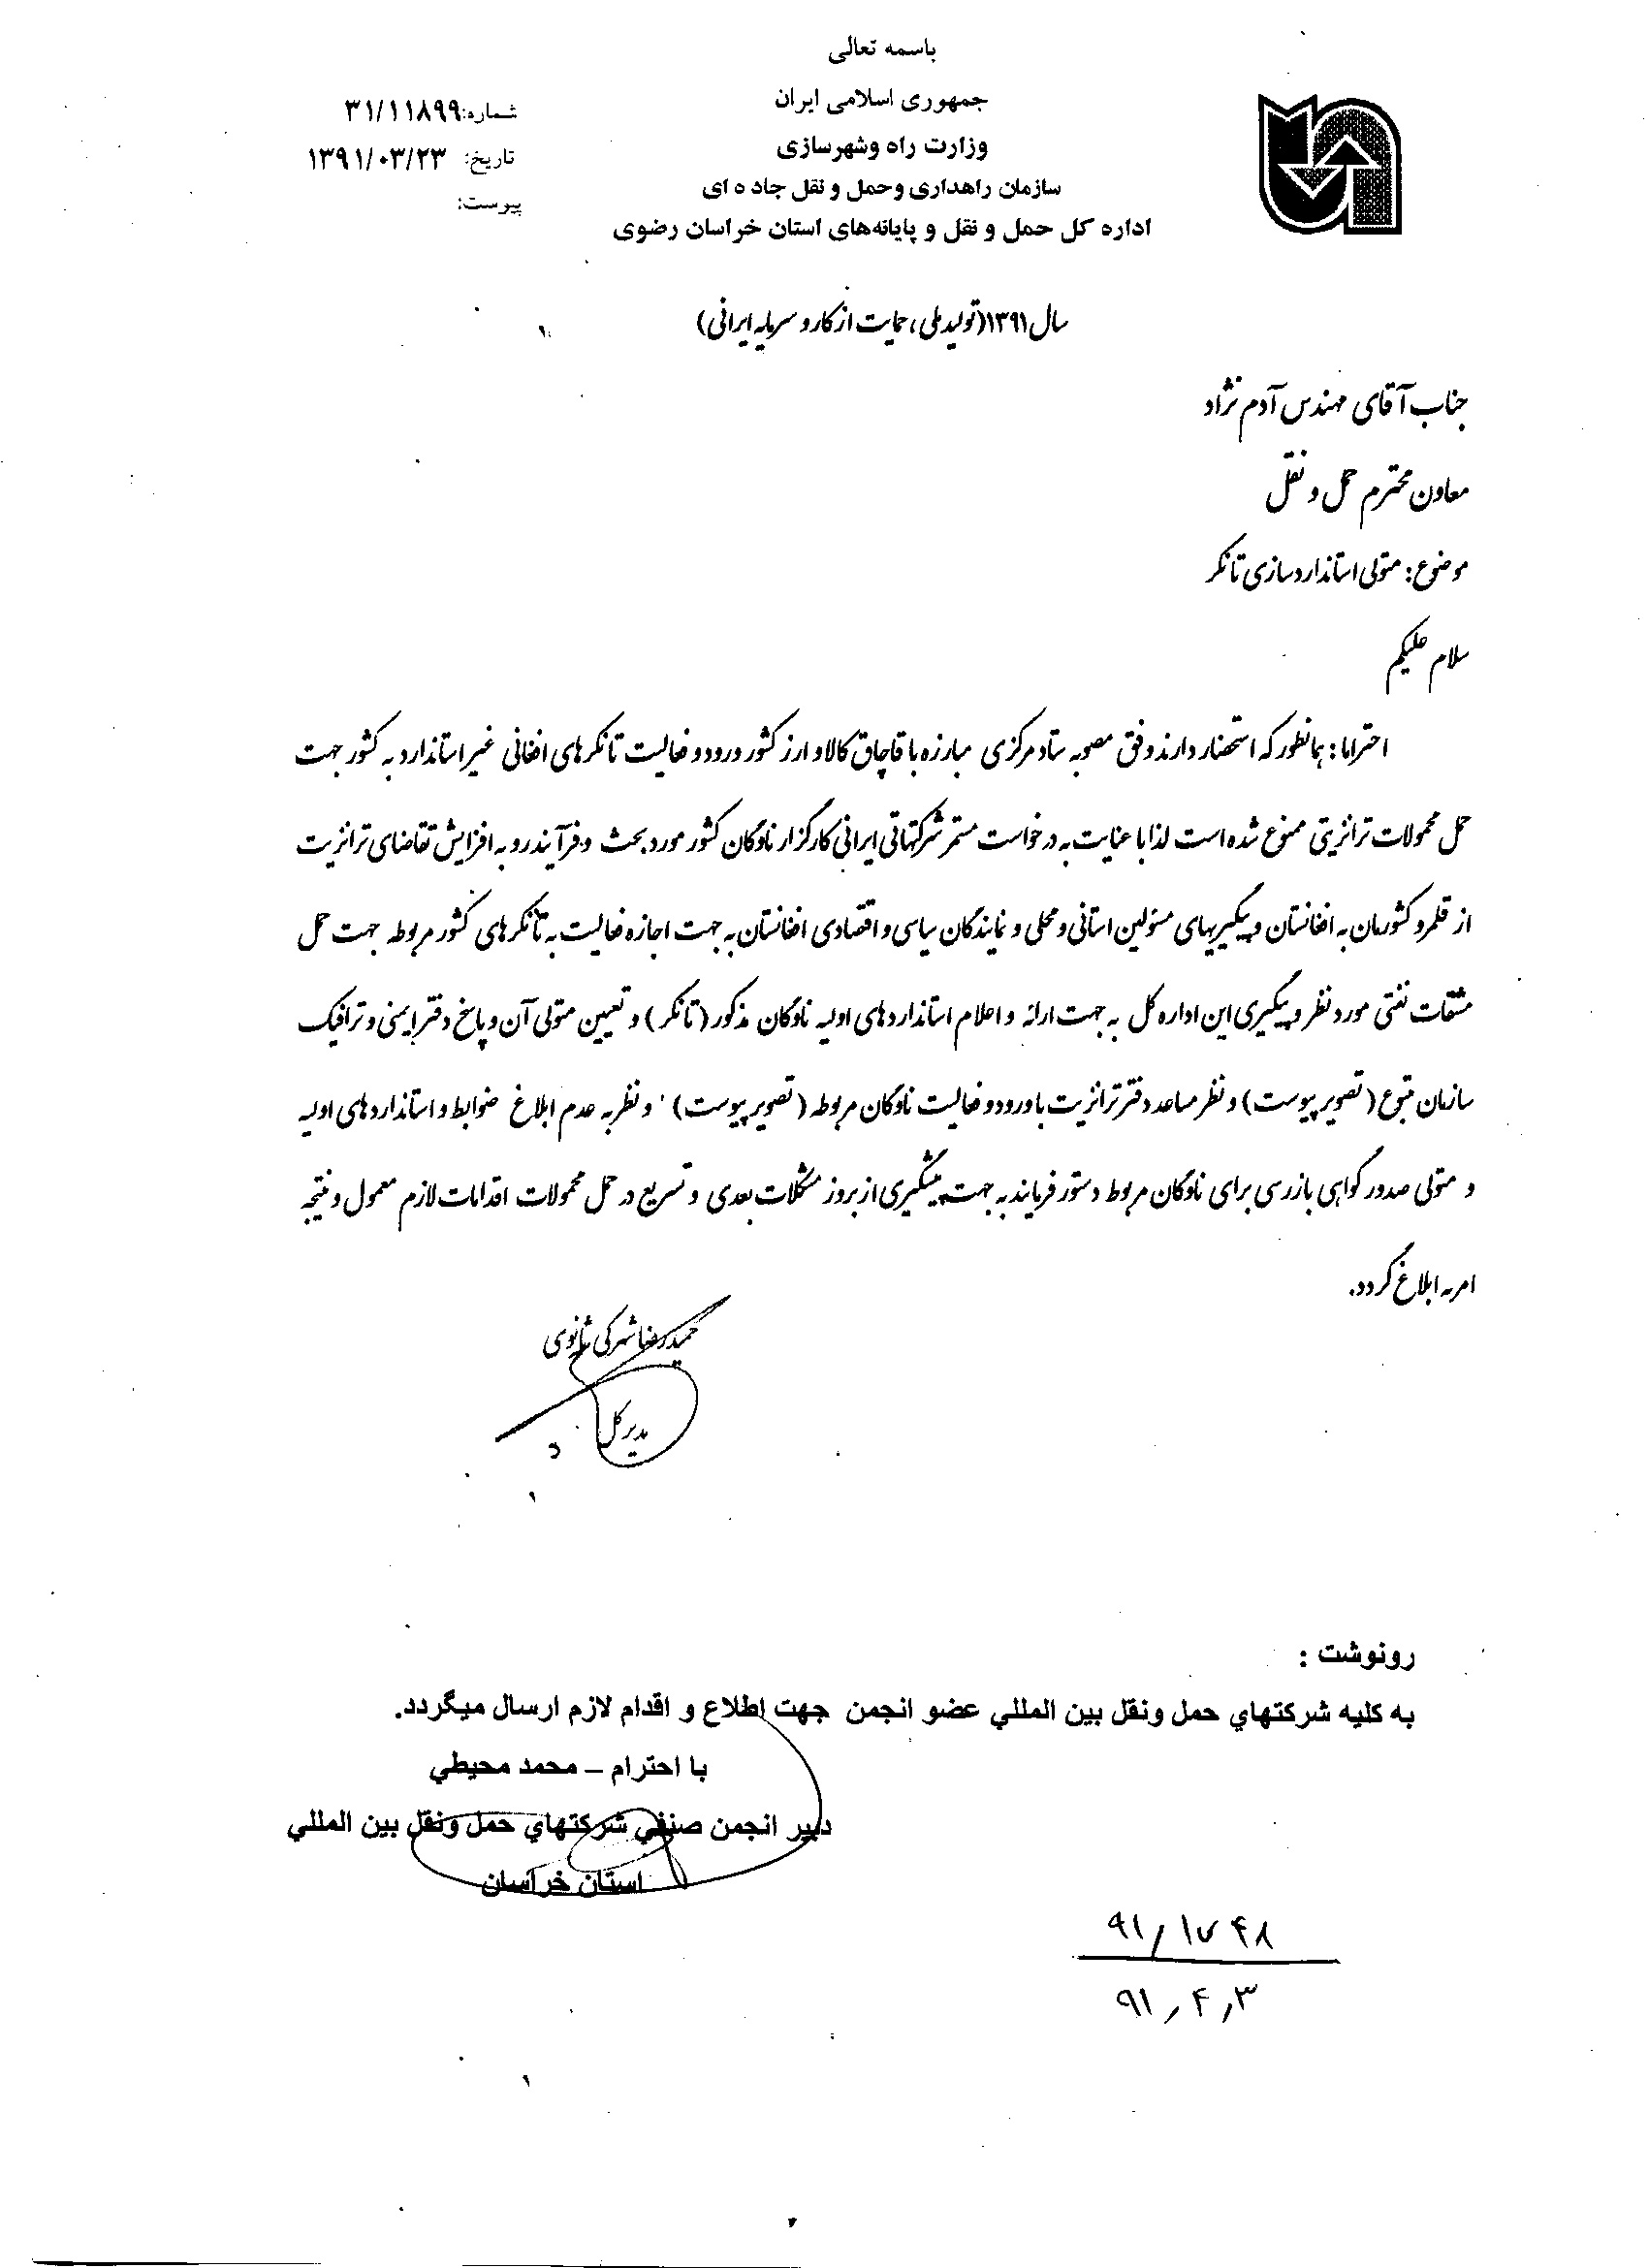 باسمه تعالی
جمهوری اسلامی ایران
وزارت راه وشهرسازی
سازمان راهداری وحمل و نقل جاده ای
اداره کل حمل و نقل و پایانه‌های استان خراسان رضوی
شماره: ۳۱/۱۱۸۹۹
تاریخ: ۱۳۹۱/۰۳/۲۳
پیوست:
سال ۱۳۹۱(تولید ملی، حمایت از کار و سرمایه ایرانی)
جناب آقای مهندس آدم نژاد
معاون محترم حمل و نقل
موضوع: متولی استاندارد سازی تانکر
سلام علیکم
احتراما: همانطور که استحضار دارند وفق مصوبه ستاد مرکزی مبارزه با قاچاق کالا و ارز کشور ورود و فعالیت تانکرهای افغانی غیر استاندارد به کشور جهت
حمل محمولات ترانزیتی ممنوع شده است لذا با عنایت به درخواست مستمر شرکتهائی ایرانی کارگزار ناوگان کشور مورد بحث و فرآیند رو به افزایش تقاضای ترانزیت
از قلمرو کشورمان به افغانستان و پیگیریهای مسئولین استانی و محلی و نمایندگان سیاسی و اقتصادی افغانستان به جهت اجازه فعالیت به تانکرهای کشور مربوطه جهت حمل
مشتقات نفتی مورد نظر و پیگیری این اداره کل به جهت ارائه و اعلام استانداردهای اولیه ناوگان مذکور (تانکر) و تعیین متولی آن و پاسخ دفتر ایمنی و ترافیک
سازمان متبوع (تصویر پیوست) و نظر مساعد دفتر ترانزیت با ورود و فعالیت ناوگان مربوطه (تصویر پیوست) و نظر به عدم ابلاغ ضوابط و استانداردهای اولیه
و متولی صدور گواهی بازرسی برای ناوگان مربوط دستور فرمایند به جهت پیشگیری از بروز مشکلات بعدی و تسریع در حمل محمولات اقدامات لازم معمول و نتیجه
امر به ابلاغ گردد.
حمیدرضا شهرکی ثانوی
مدیر کل
رونوشت :
به کلیه شرکتهاي حمل ونقل بین المللي عضو انجمن جهت اطلاع و اقدام لازم ارسال میگردد.
با احترام – محمد محیطي
دبیر انجمن صنفي شرکتهاي حمل ونقل بین المللي
استان خراسان
۹۱/۱۷۴۸
۹۱,۴,۳